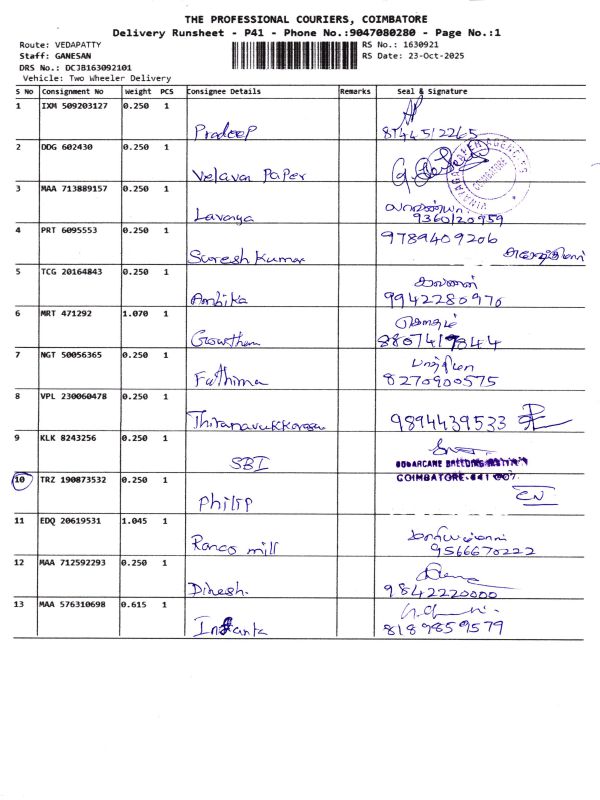 THE PROFESSIONAL COURIERS, COIMBATORE
Delivery Runsheet - P41 - Phone No.:9047080280 - Page No.:1
Route: VEDAPATTY RS No.: 1630921
Staff: GANESAN RS Date: 23-Oct-2025
DRS No.: DCJB163092101
Vehicle: Two Wheeler Delivery
S No Consignment No Weight PCS Consignee Details Remarks Seal & Signature
1 IXM 509203127 0.250 1
Pradeep 8144512265
2 DDG 602430 0.250 1
Velavan Paper
3 MAA 713889157 0.250 1
Lavanya 9360120959
4 PRT 6095553 0.250 1 9789409206
Suresh Kumar
5 TCG 20164843 0.250 1
Ambika 9942280976
6 MRT 471292 1.070 1
Gowtham 8807417844
7 NGT 50056365 0.250 1
Fathima 8270900575
8 VPL 230060478 0.250 1
Thirunavukkarasu 9894439533
9 KLK 8243256 0.250 1
SBI
10 TRZ 190873532 0.250 1 COIMBATORE-641 007.
Philip
11 EDQ 20619531 1.045 1
Ranco mill 9566670222
12 MAA 712592293 0.250 1
Dinesh. 9842220000
13 MAA 576310698 0.615 1
8189859579